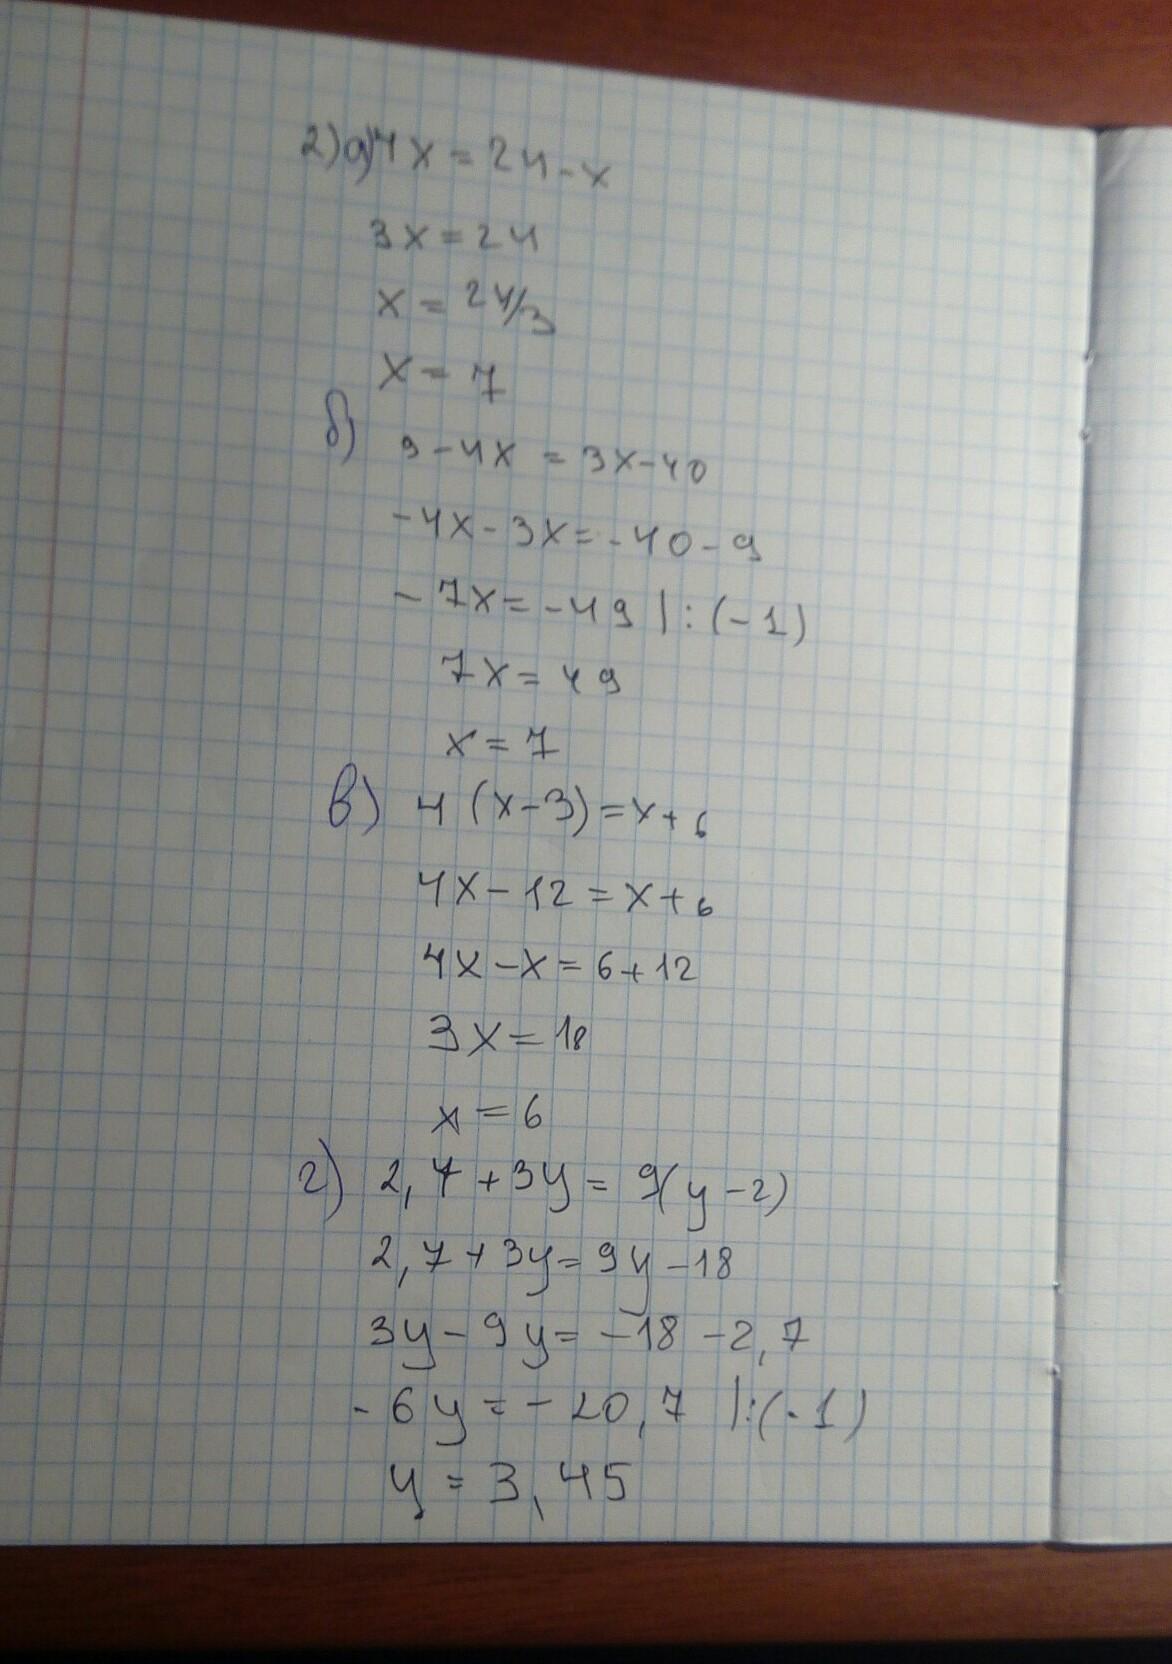 2) а) 4x = 24 - x
3x = 24
x = 24/3
x = 7
б) 9 - 4x = 3x - 40
-4x - 3x = -40 - 9
-7x = -49 | : (-1)
7x = 49
x = 7
в) 4 (x - 3) = x + 6
4x - 12 = x + 6
4x - x = 6 + 12
3x = 18
x = 6
г) 2,7 + 3y = 9(y - 2)
2,7 + 3y = 9y - 18
3y - 9y = -18 - 2,7
-6y = -20,7 | : (-1)
y = 3,45